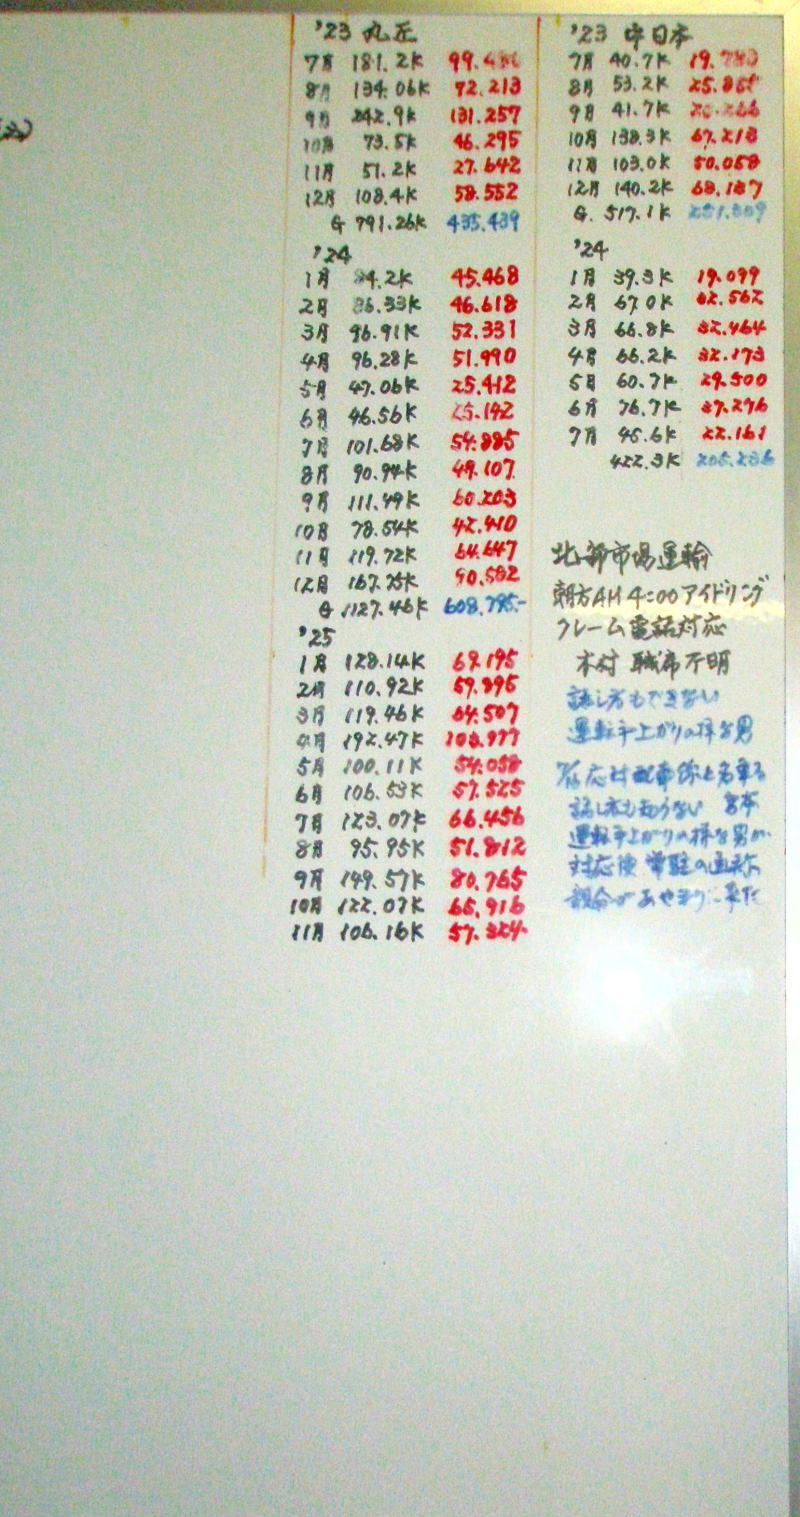 '23 丸正
7月 181.2K 99.
8月 134.06K 72.213
9月 242.9K 131.257
10月 73.5K 46.295
11月 51.2K 27.642
12月 108.4K 58.552
G 791.26K 435.439
'24
1月 84.2K 45.468
2月 86.33K 46.618
3月 96.91K 52.331
4月 96.28K 51.990
5月 47.06K 25.412
6月 46.56K 25.142
7月 101.68K 54.885
8月 90.94K 49.107
9月 111.49K 60.203
10月 78.54K 42.410
11月 119.72K 64.647
12月 167.75K 90.582
G 1127.46K 608.795-
'25
1月 128.14K 69.195
2月 110.92K 59.895
3月 119.46K 64.507
4月 192.47K 103.977
5月 100.11K 54.058
6月 106.53K 57.525
7月 123.07K 66.456
8月 95.95K 51.812
9月 149.57K 80.765
10月 122.07K 65.916
11月 106.16K 57.324-
'23 中日本
7月 40.7K 19.780
8月 53.2K 25.855
9月 41.7K 20.266
10月 138.3K 67.213
11月 103.0K 50.058
12月 140.2K 68.137
G. 517.1K 251.309
'24
1月 39.3K 19.099
2月 67.0K 32.562
3月 66.8K 32.464
4月 66.2K 32.173
5月 60.7K 29.500
6月 76.7K 37.276
7月 45.6K 22.161
422.3K 205.236
北部市場運輸
朝方AM 4:00アイドリング
クレーム電話対応
木村 職席不明
話し方もできない
運転手上がりの様な男
応対配車係と名乗る
話し方も 宮本
運転手上がりの様な男が
対応後 常駐の
があやまりに来た